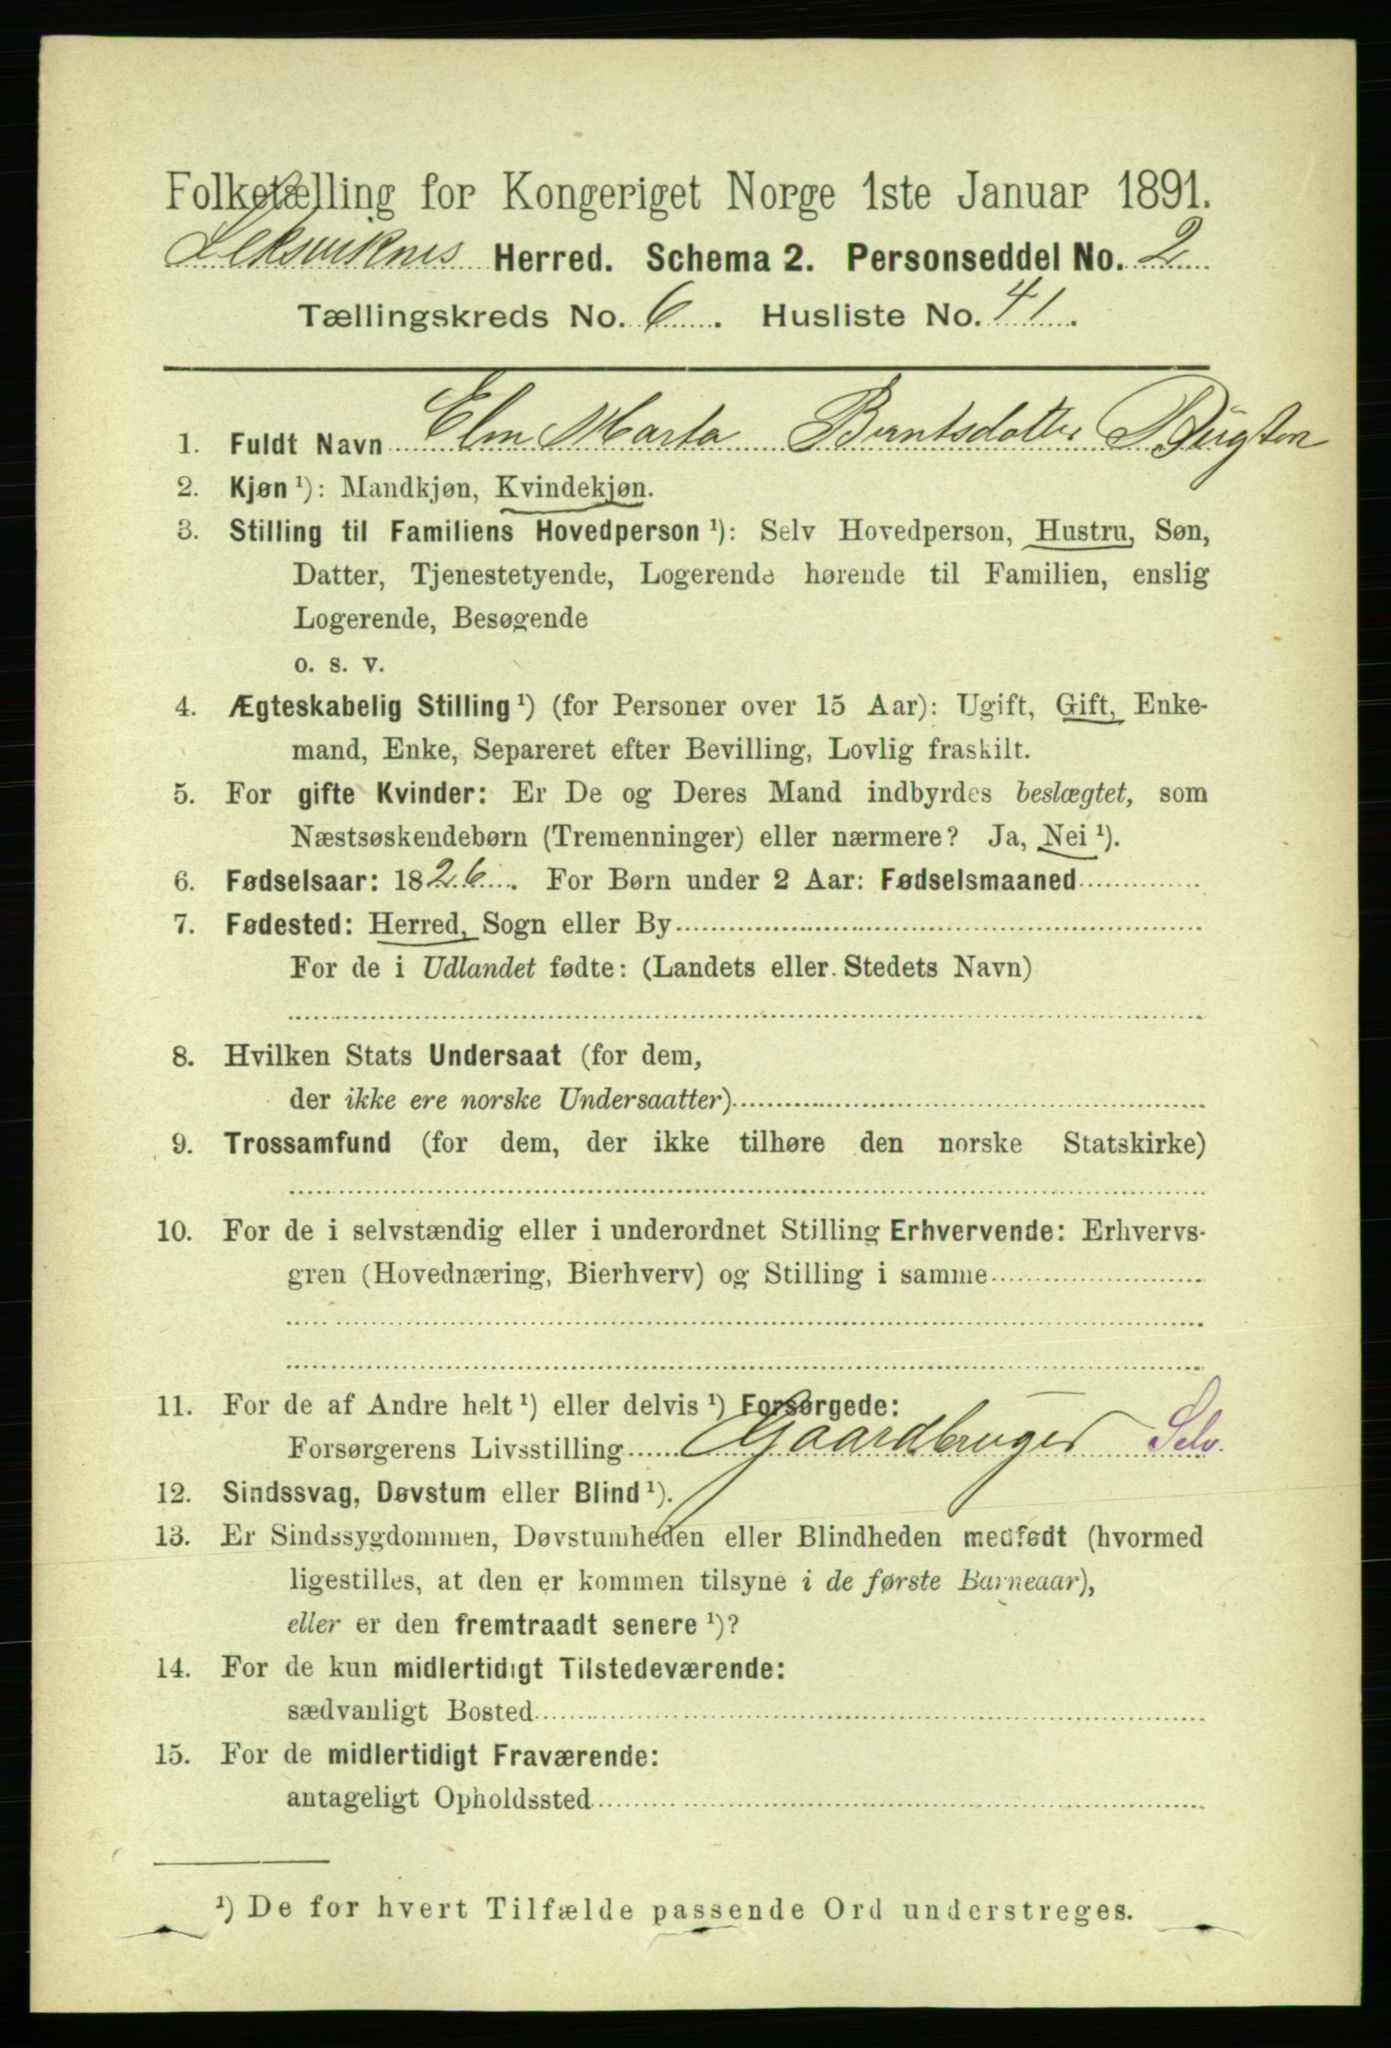 Folketælling for Kongeriget Norge 1ste Januar 1891.
Leksviknes Herred. Schema 2. Personseddel No. 2
Tællingskreds No. 6. Husliste No. 41.
1. Fuldt Navn Elen Marta Berntsdatter
2. Kjøn ¹): Mandkjøn, Kvindekjøn.
3. Stilling til Familiens Hovedperson ¹): Selv Hovedperson, Hustru, Søn,
Datter, Tjenestetyende, Logerende hørende til Familien, enslig
Logerende, Besøgende
o. s. v.
4. Ægteskabelig Stilling ¹) (for Personer over 15 Aar): Ugift, Gift, Enke-
mand, Enke, Separeret efter Bevilling, Lovlig fraskilt.
5. For gifte Kvinder: Er De og Deres Mand indbyrdes beslægtet, som
Næstsøskendebørn (Tremenninger) eller nærmere? Ja, Nei ¹).
6. Fødselsaar: 1826. For Børn under 2 Aar: Fødselsmaaned
7. Fødested: Herred, Sogn eller By
For de i Udlandet fødte: (Landets eller Stedets Navn)
8. Hvilken Stats Undersaat (for dem,
der ikke ere norske Undersaatter)
9. Trossamfund (for dem, der ikke tilhøre den norske Statskirke)
10. For de i selvstændig eller i underordnet Stilling Erhvervende: Erhvervs-
gren (Hovednæring, Bierhverv) og Stilling i samme
11. For de af Andre helt ¹) eller delvis ¹) Forsørgede:
Forsørgerens Livsstilling Gaardbruger Selv.
12. Sindssvag, Døvstum eller Blind ¹).
13. Er Sindssygdommen, Døvstumheden eller Blindheden medfødt (hvormed
ligestilles, at den er kommen tilsyne i de første Barneaar),
eller er den fremtraadt senere ¹)?
14. For de kun midlertidigt Tilstedeværende:
sædvanligt Bosted
15. For de midlertidigt Fraværende:
antageligt Opholdssted
¹) De for hvert Tilfælde passende Ord understreges.